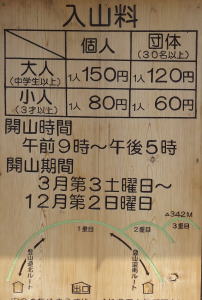 入山料
個人 団体
(30名以上)
大人
(中学生以上) 1人150円 1人120円
小人
(3才以上) 1人80円 1人60円
開山時間
午前9時〜午後5時
開山期間
3月第3土曜日〜
12月第2日曜日
342M
1重目 2重目 3重目
登山道北ルート 登山道南ルート
出口